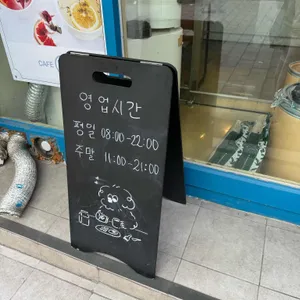 CAFE
영업시간
평일 08:00~22:00
주말 11:00~21:00